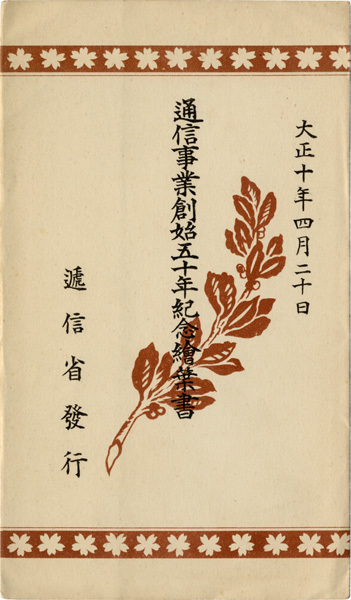 大正十年四月二十日
通信事業創始五十年紀念繪葉書
遞信省發行